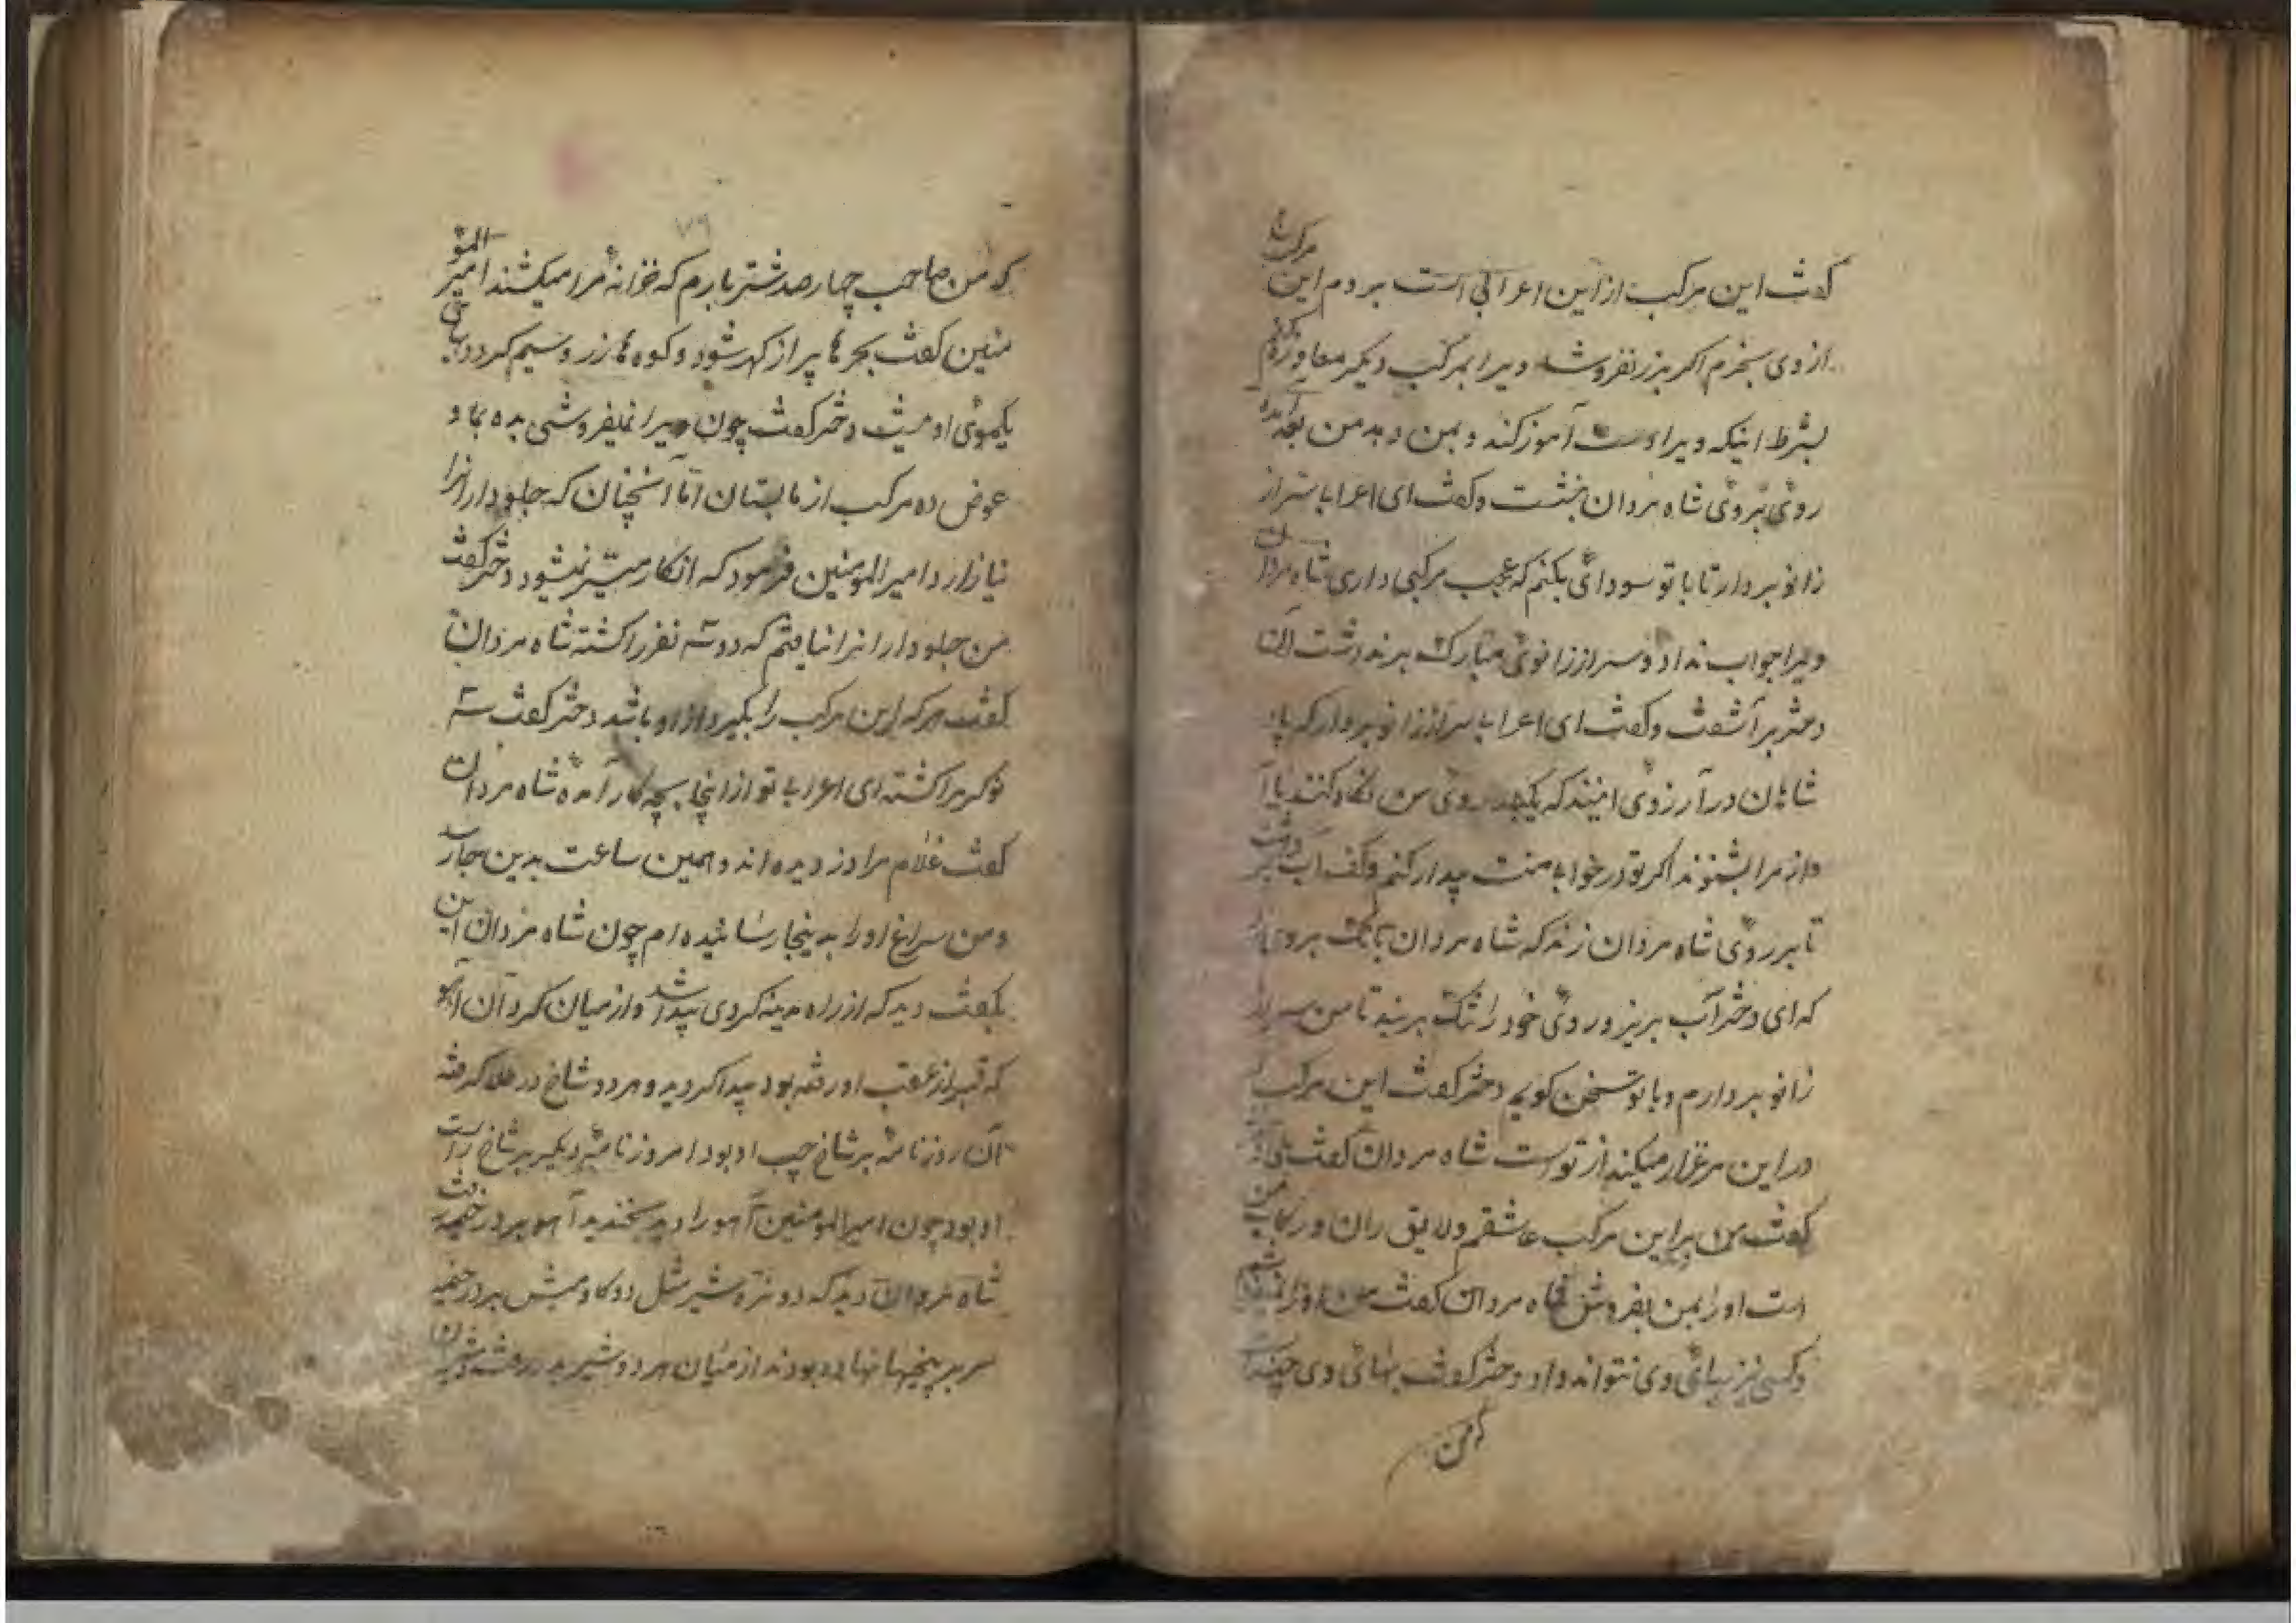 گفت این مرکب از این اعرابی است بروم این مرکب را
از وی بخرم اگر بزر نفروشد ویرا بمرکب دیگر معاوضه
بشرط اینکه ویرا دست آموز کند و بمن دهد من بعد آمد
روی بروی شاه مردان بنشست و گفت ای اعرابا سر از
زانو بردار تا با تو سودائی بکنم که عجب مرکبی داری شاه مردان
ویرا جواب نداد و سر از زانوی مبارک بر نداشت آن
دختر بر آشفت و گفت ای اعرابا سر از زانو بردار که پا
شاهان در آرزوی اینند که یکبار روی من نگاه کنند یا آ
واز مرا بشنوند اگر تو در خوابی منت بیدار کنم و کف آب بر
تا بر روی شاه مردان زند که شاه مردان بروی
که ای دختر آب بریز و روی خود را تنگ بربند تا من سر از
زانو بردارم و با تو سخن گویم دختر گفت این مرکب
در این مرغزار میکند از تو است شاه مردان گفت بلی
گفت من بر این مرکب عاشقم و لایق ران و رکاب من
است او را بمن بفروش شاه مردان گفت من او را
و کسی نیز بهائی وی نتواند داد دختر گفت بهائی وی چند
که من
۷۹
که من صاحب چهار صد شتر بارم که خزانه مرا میکشند امیر المو
منین گفت بحر ها پر از گهر شود و کوه ها زر و سیم گردد بهائی
یکموی او نیست دختر گفت چون ویرا نمیفروشی بده بما و
عوض ده مرکب از ما بستان اما آنچنان که جلودارانرا
نیازارد امیر المومنین فرمود که انکار میسر نمیشود دختر گفت
من جلودارانرا نیافتم که دو سه نفر را کشته شاه مردان
گفت هر که این مرکب را بگیرد از او باشد دختر گفت سه
نوکر مرا کشته ای اعرابا تو از اینجا بچه کار آمده شاه مردان
گفت غلام مرا دزدیده اند و همین ساعت بدین جا رسید
و من سراغ او را بدینجا رسانیده ام چون شاه مردان این
بگفت دید که از راه مدینه گردی پیدا شد و از میان گرد آن آهو
که قنبر از عقب او رفته بود پیدا گردید و هر دو شاخ در طلا گرفته
آن روز نامه بر شاخ چپ او بود امروز نامه دیگر بر شاخ راست
او بود چون امیر المومنین آهو را دید بخندید آهو بر در خیمه رفت
شاه مردان دید که دو نره شیر مثل دو گاو میش بر در خیمه
سر بر پنجها نهاده بودند از میان هر دو شیر بدر رفت و شیران